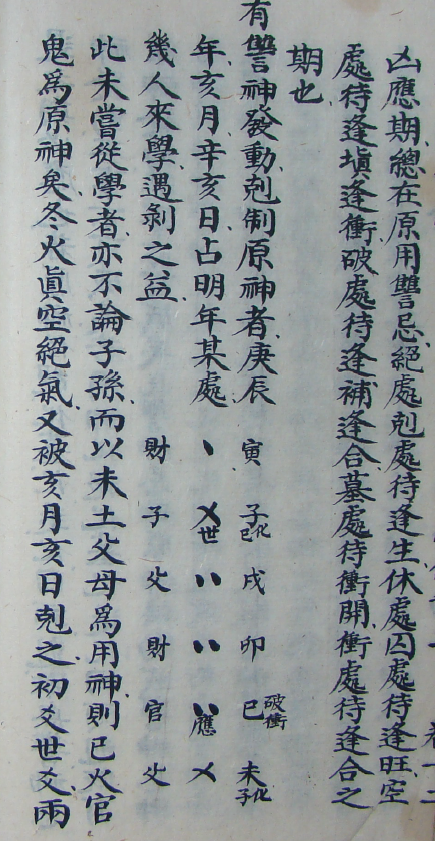 凶應期、總在原用讐忌、絕處剋處待逢生、休處囚處待逢旺、空
處待逢塡逢衝、破處待逢補逢合、墓處待衝開、衝處待逢合之
期也、
有讐神發動、剋制原神者、庚辰 寅 子化巳 戌 卯 巳破衝 未化子
年、亥月、辛亥日、占明年某處、丶 㐅世 〃 〃 〃應 㐅
幾人來學、遇剝之益、財 子 父 財 官 父
此未嘗從學者、亦不論子孫、而以未土父母爲用神、則巳火官
鬼爲原神矣、冬火眞空絕氣、又被亥月亥日剋之、初爻世爻、兩